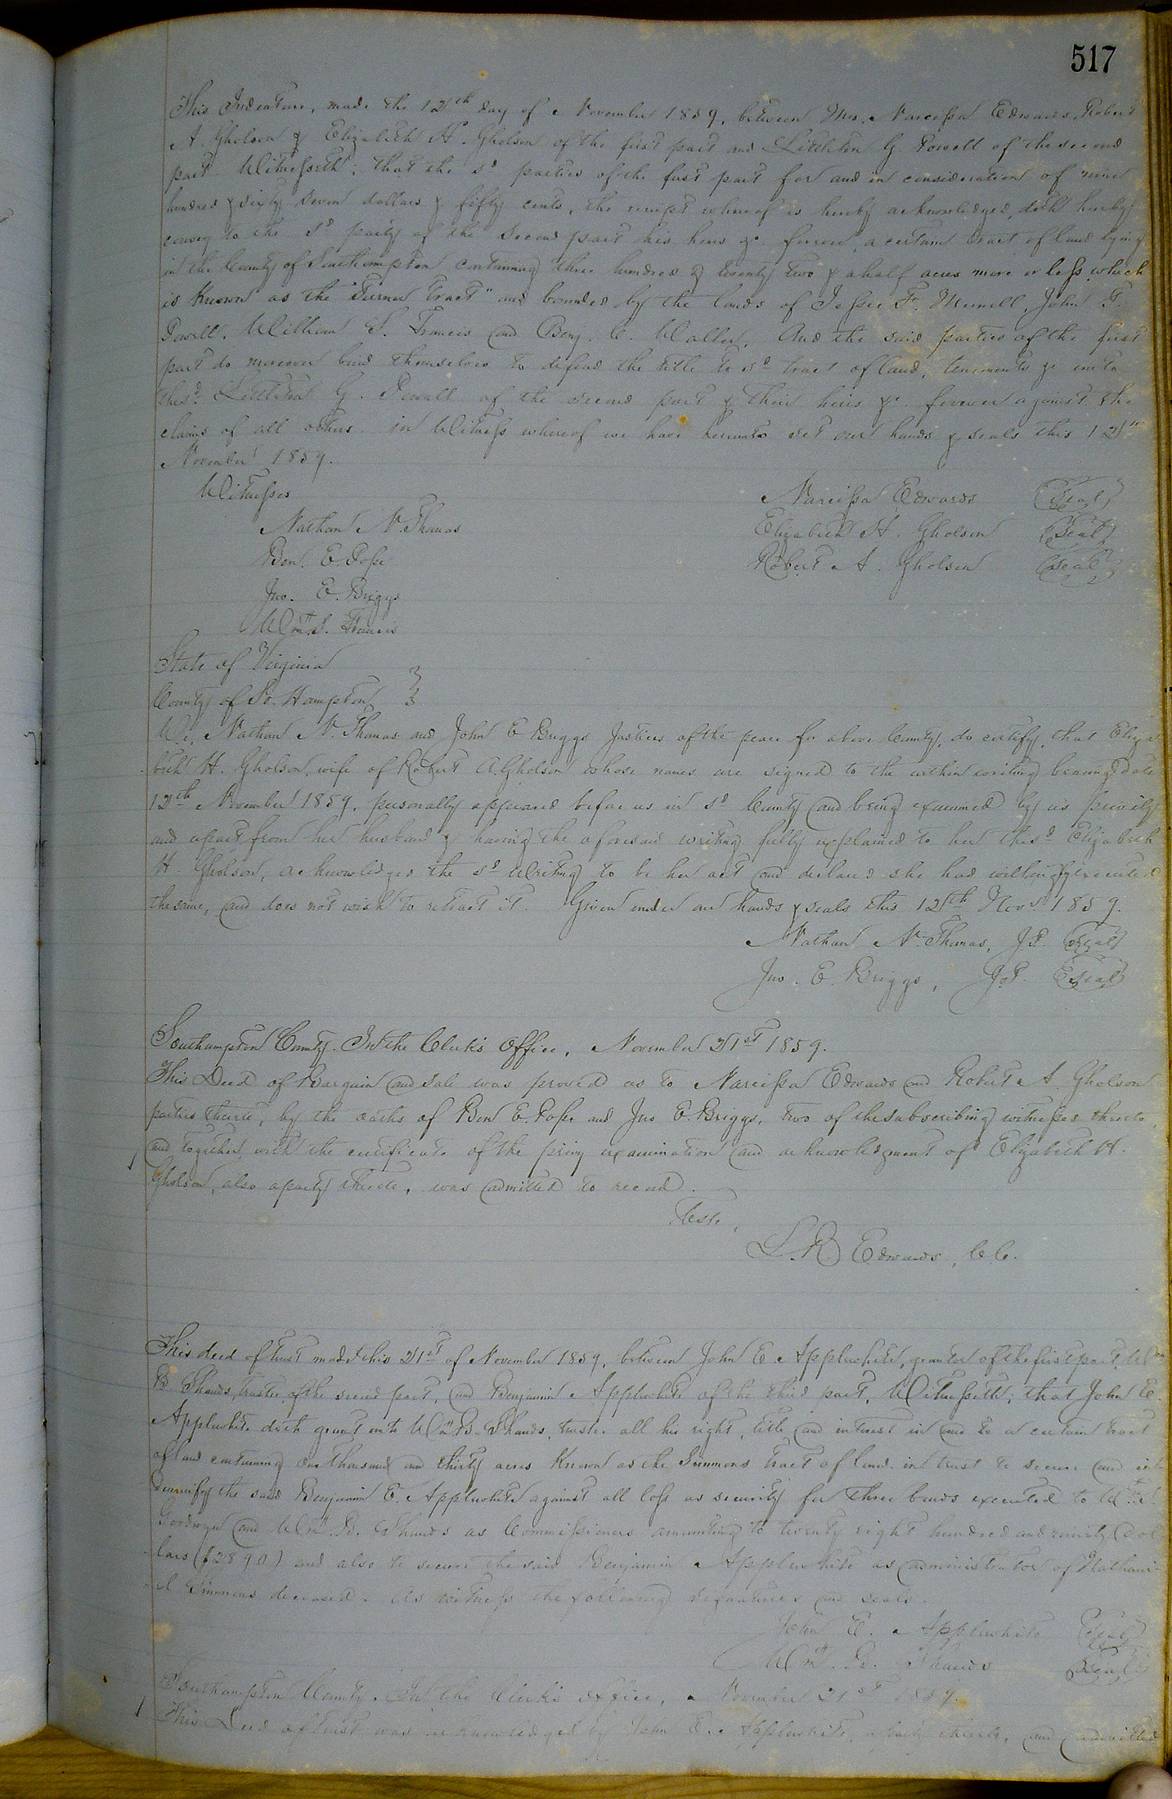 517
This Indenture, made the 12th day of November 1859, between Mrs. Narcissa Edwards, Robert
A. Gholson & Elizabeth H. Gholson of the first part and Littleton G. Powell of the second
part Witnesseth; that the sd parties of the first part for and in consideration of nine
hundred & sixty seven dollars & fifty cents, the receipt whereof is hereby acknowledged, doth hereby
convey to the sd party of the second part his heirs &c forever, a certain tract of land lying
in the County of Southampton containing three hundred & twenty two & a half acres more or less, which
is known as the "Turner tract" and bounded by the lands of Jesse F. Merrell, John T.
Powell, William S. Francis and Benj. C. Waller. And the said parties of the first
part do moreover bind themselves to defend the title to sd tract of land, tenements &c unto
the sd Littleton G. Powell of the second part & their heirs &c forever against the
claims of all others in Witness whereof we have hereunto set our hands & seals this 12th
November 1859.
Witnesses
Narcissa Edwards (Seal)
Nathan N. Thomas
Elizabeth H. Gholson (Seal)
Ben. E. Pope
Robert A. Gholson (Seal)
Jno. E. Briggs
Wm. S. Francis
State of Virginia
County of So. Hampton
We, Nathan N. Thomas and John E Briggs Justices of the peace for above County, do certify, that Eliza
beth H. Gholson, wife of Robert A Gholson whose names are signed to the within writing bearing date
12th November 1859, personally appeared before us in sd County and being examined by us privily
and apart from her husband & having the aforesaid writing fully explained to her the sd Elizabeth
H. Gholson, acknowledged the sd Writing to be her act and declared she had willingly executed
the same, and does not wish to retract it. Given under our hands & seals this 12th Nov 1859.
Nathan N. Thomas, J.P. (Seal)
Jno. E. Briggs, J.P. (Seal)
Southampton County. In the Clerk's Office, November 21st 1859.
This Deed of Bargain and sale was proved as to Narcissa Edwards and Robert A. Gholson
parties thereto, by the oaths of Ben E. Pope and Jno E. Briggs, two of the subscribing witnesses thereto,
and together with the certificate of the privy examination and acknowledgment of Elizabeth H.
Gholson, also a party thereto, was admitted to record.
Teste,
L. R. Edwards, C.C.
This deed of trust made this 21st of November 1859, between John E. Applewhite, grantor of the first part, Wm
B. Shands, trustee of the second part, and Benjamin Applewhite of the third part, Witnesseth; that John E
Applewhite doth grant unto Wm B. Shands, trustee all his right, title and interest in and to a certain tract
of land containing one thousand and thirty acres known as the Simmons tract of land. in trust to secure and in
demnify the said Benjamin E. Applewhite against all loss as security for three bonds executed to
Goodwyn and Wm. B. Shands as Commissioners amounting to twenty eight hundred and ninety dol
lars ($2890) and also to secure the said Benjamin Applewhite as administrator of Nathani
el Simmons deceased. As witness the following signatures and seals.
John E. Applewhite (Seal)
Wm. B. Shands (Seal)
Southampton County. In the Clerk's office, November 21st 1859.
This Deed of trust was acknowledged by John E. Applewhite, a party thereto, and admitted